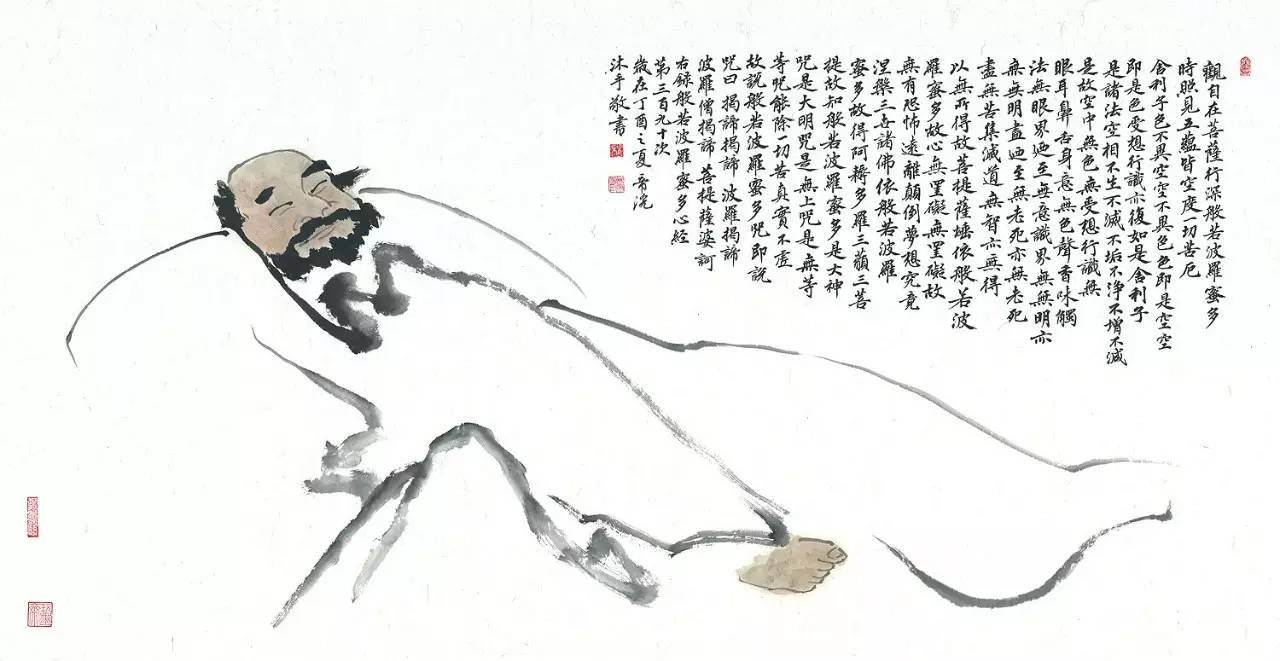 觀自在菩薩行深般若波羅蜜多
時照見五蘊皆空度一切苦厄
舍利子色不異空空不異色色即是空空
即是色受想行識亦復如是舍利子
是諸法空相不生不滅不垢不淨不增不減
是故空中無色無受想行識無
眼耳鼻舌身意無色聲香味觸
法無眼界迺至無意識界無無明亦
無無明盡迺至無老死亦無老死
盡無苦集滅道無智亦無得
以無所得故菩提薩埵依般若波
羅蜜多故心無罣礙無罣礙故
無有恐怖遠離顛倒夢想究竟
涅槃三世諸佛依般若波羅
蜜多故得阿耨多羅三藐三菩
提故知般若波羅蜜多是大神
咒是大明咒是無上咒是無等
等咒能除一切苦真實不虛
故說般若波羅蜜多咒即說
咒曰 揭諦揭諦 波羅揭諦
波羅僧揭諦 菩提薩婆訶
右錄般若波羅蜜多心經
第三百九十次
歲在丁酉之夏
沐手敬書